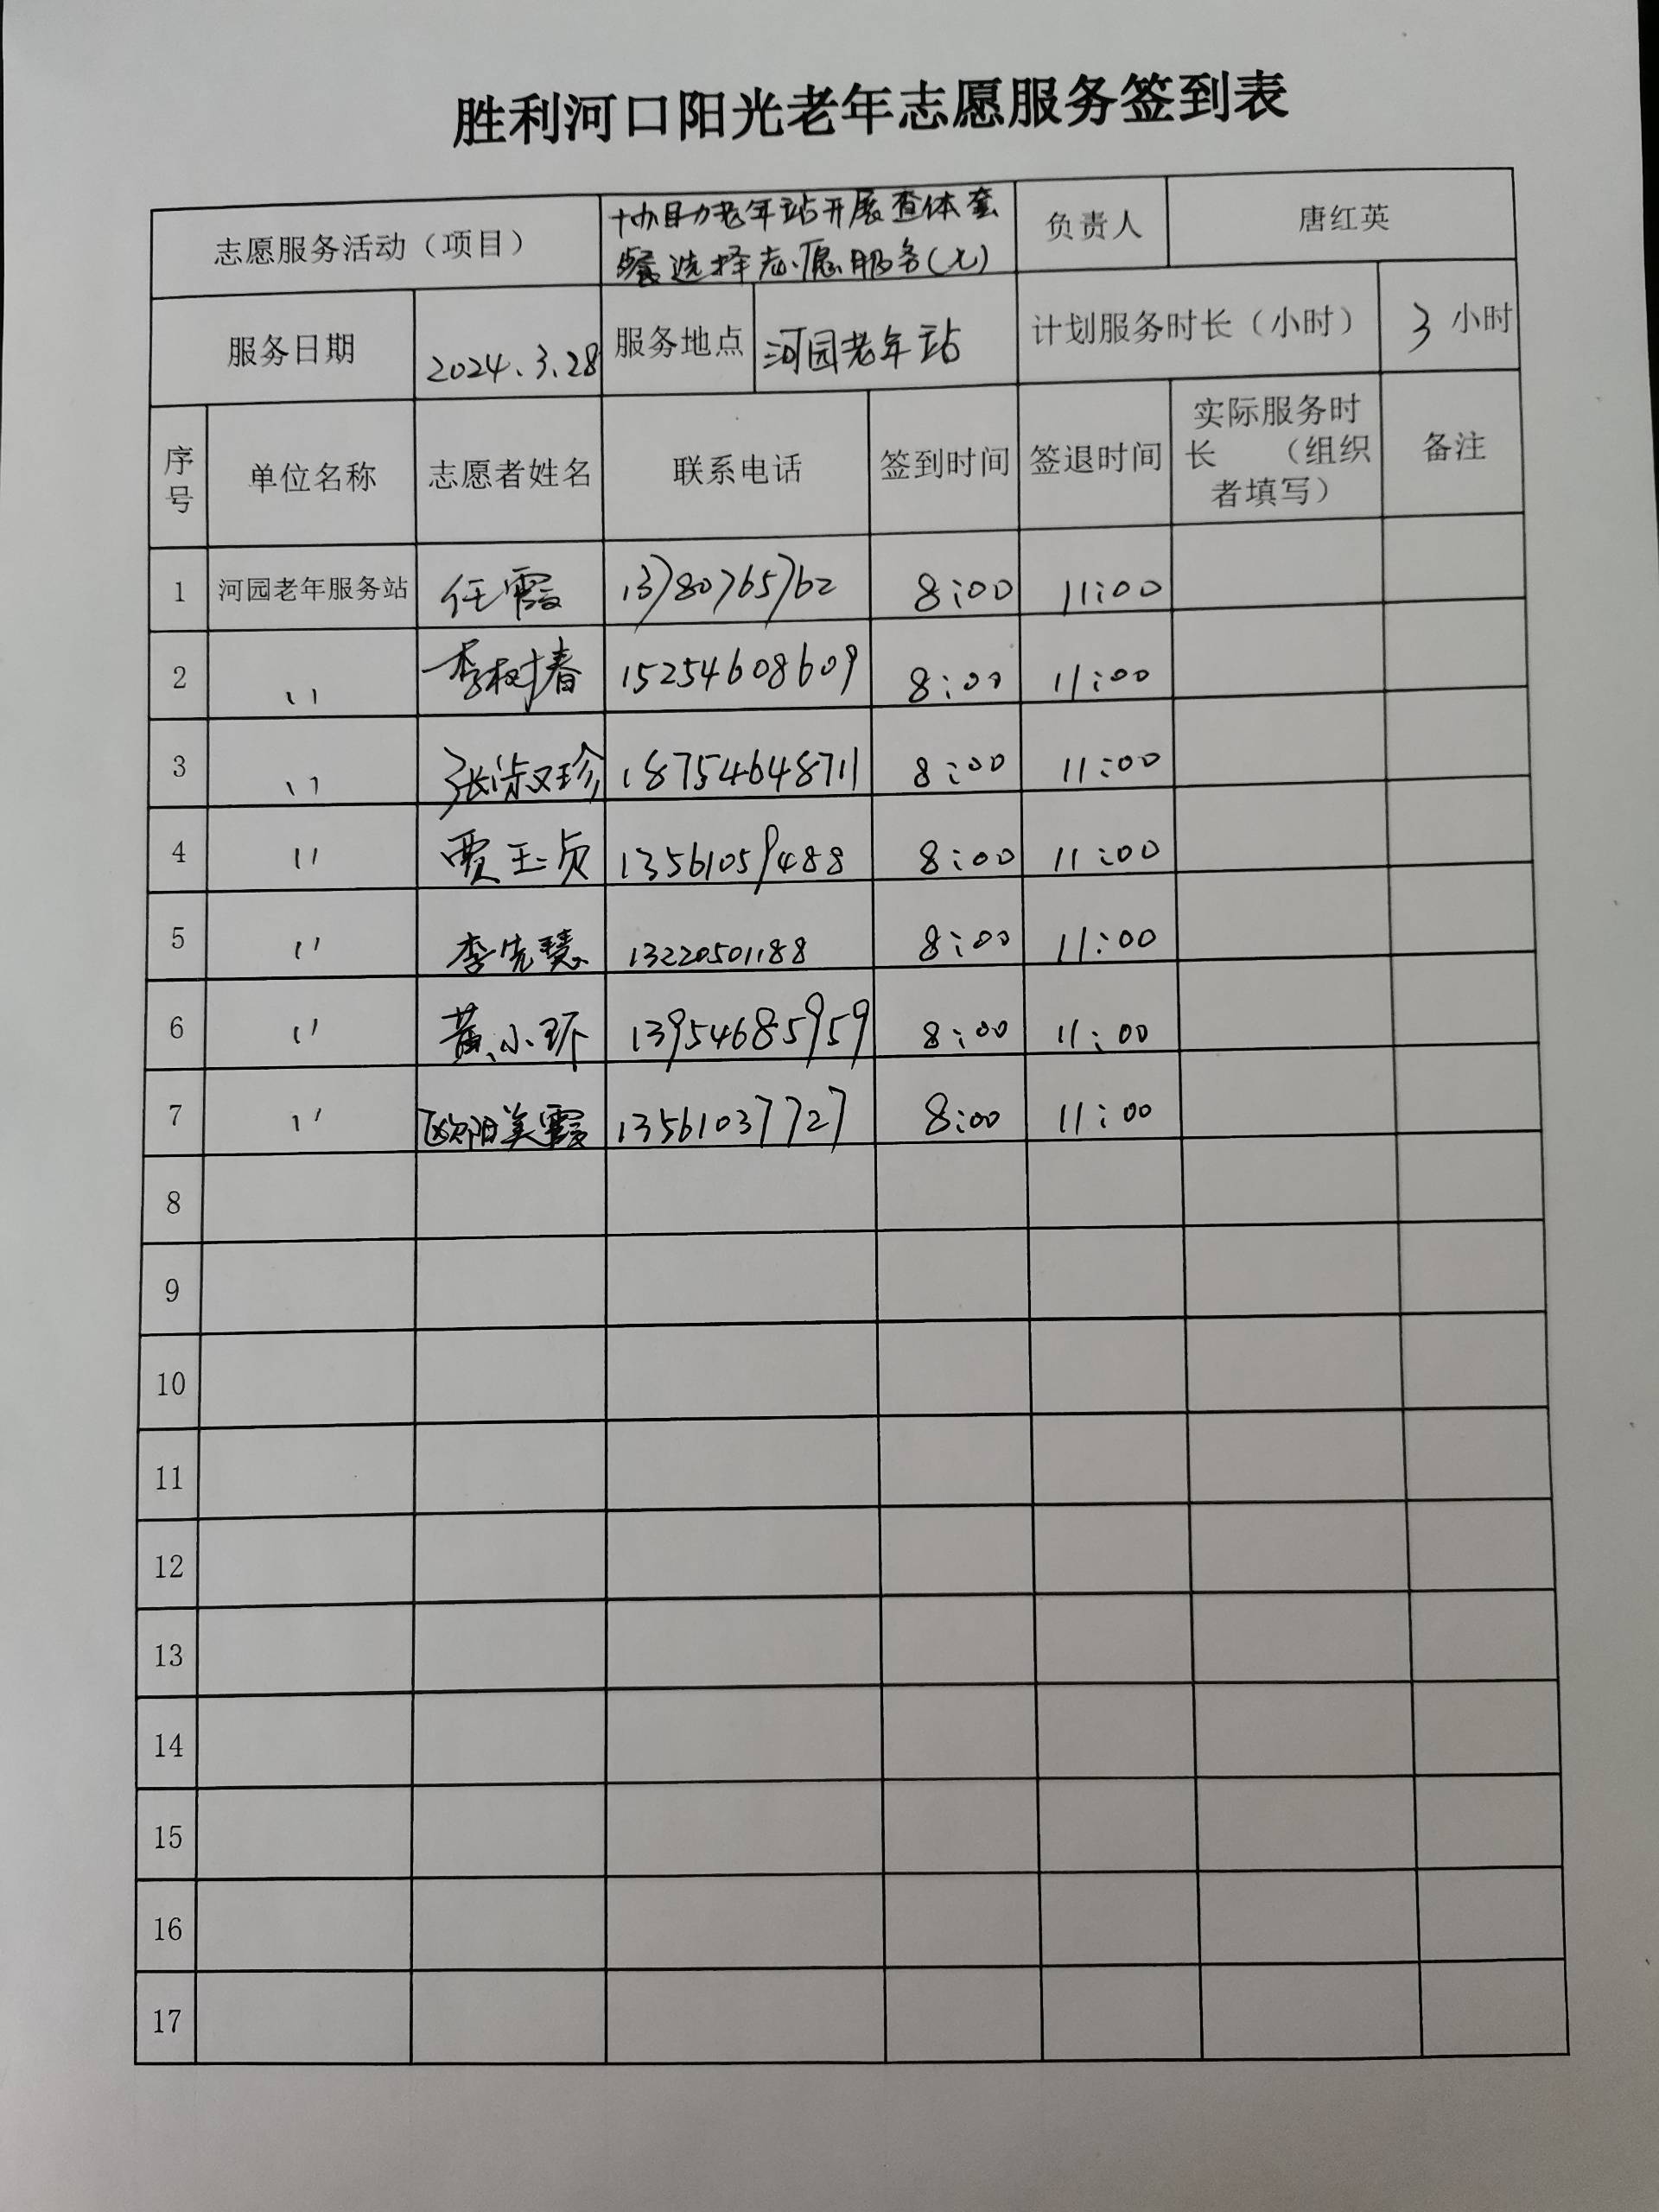 胜利河口阳光老年志愿服务签到表
志愿服务活动（项目） 协助老年站开展查体套 负责人 唐红英
餐选择志愿服务(七)
服务日期 2024.3.28 服务地点 河园老年站 计划服务时长（小时） 3 小时
序号 单位名称 志愿者姓名 联系电话 签到时间 签退时间 实际服务时长 （组织者填写） 备注
1 河园老年服务站 任霞 13780765762 8:00 11:00
2 〃 李树春 15254608609 8:00 11:00
3 〃 张淑珍 18754648711 8:00 11:00
4 〃 贾玉贞 13561059488 8:00 11:00
5 〃 李先慧 13220501188 8:00 11:00
6 〃 黄小环 13954685959 8:00 11:00
7 〃 欧阳美霞 13561037727 8:00 11:00
8
9
10
11
12
13
14
15
16
17